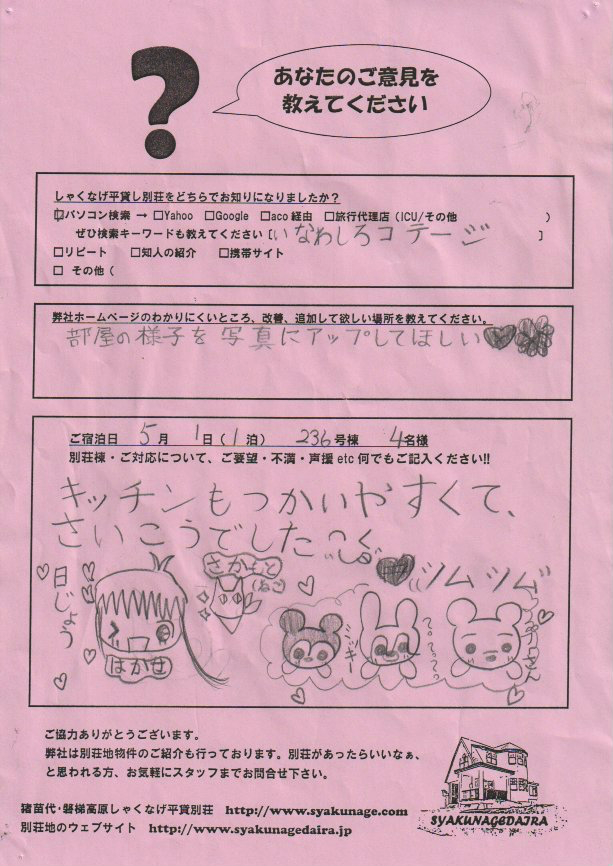 ?
あなたのご意見を
教えてください
しゃくなげ平貸し別荘をどちらでお知りになりましたか?
□パソコン検索 → □Yahoo □Google □aco 経由 □旅行代理店(ICU/その他 )
ぜひ検索キーワードも教えてください [いなわしろコテージ ]
□リピート □知人の紹介 □携帯サイト
□ その他(
弊社ホームページのわかりにくいところ、改善、追加して欲しい場所を教えてください。
部屋の様子を写真にアップしてほしい
ご宿泊日 5月 1日(1泊) 236号棟 4名様
別荘棟・ご対応について、ご要望・不満・声援 etc 何でもご記入ください!!
キッチンもつかいやすくて、
さいこうでした
さかもと
(ねこ)
ツムツム
日じょう
はかせ
ミッキー
ご協力ありがとうございます。
弊社は別荘地物件のご紹介も行っております。別荘があったらいいなぁ、
と思われる方、お気軽にスタッフまでお問合せ下さい。
SYAKUNAGEDAIRA
猪苗代・磐梯高原しゃくなげ平貸別荘 http://www.syakunage.com
別荘地のウェブサイト http://www.syakunagedaira.jp